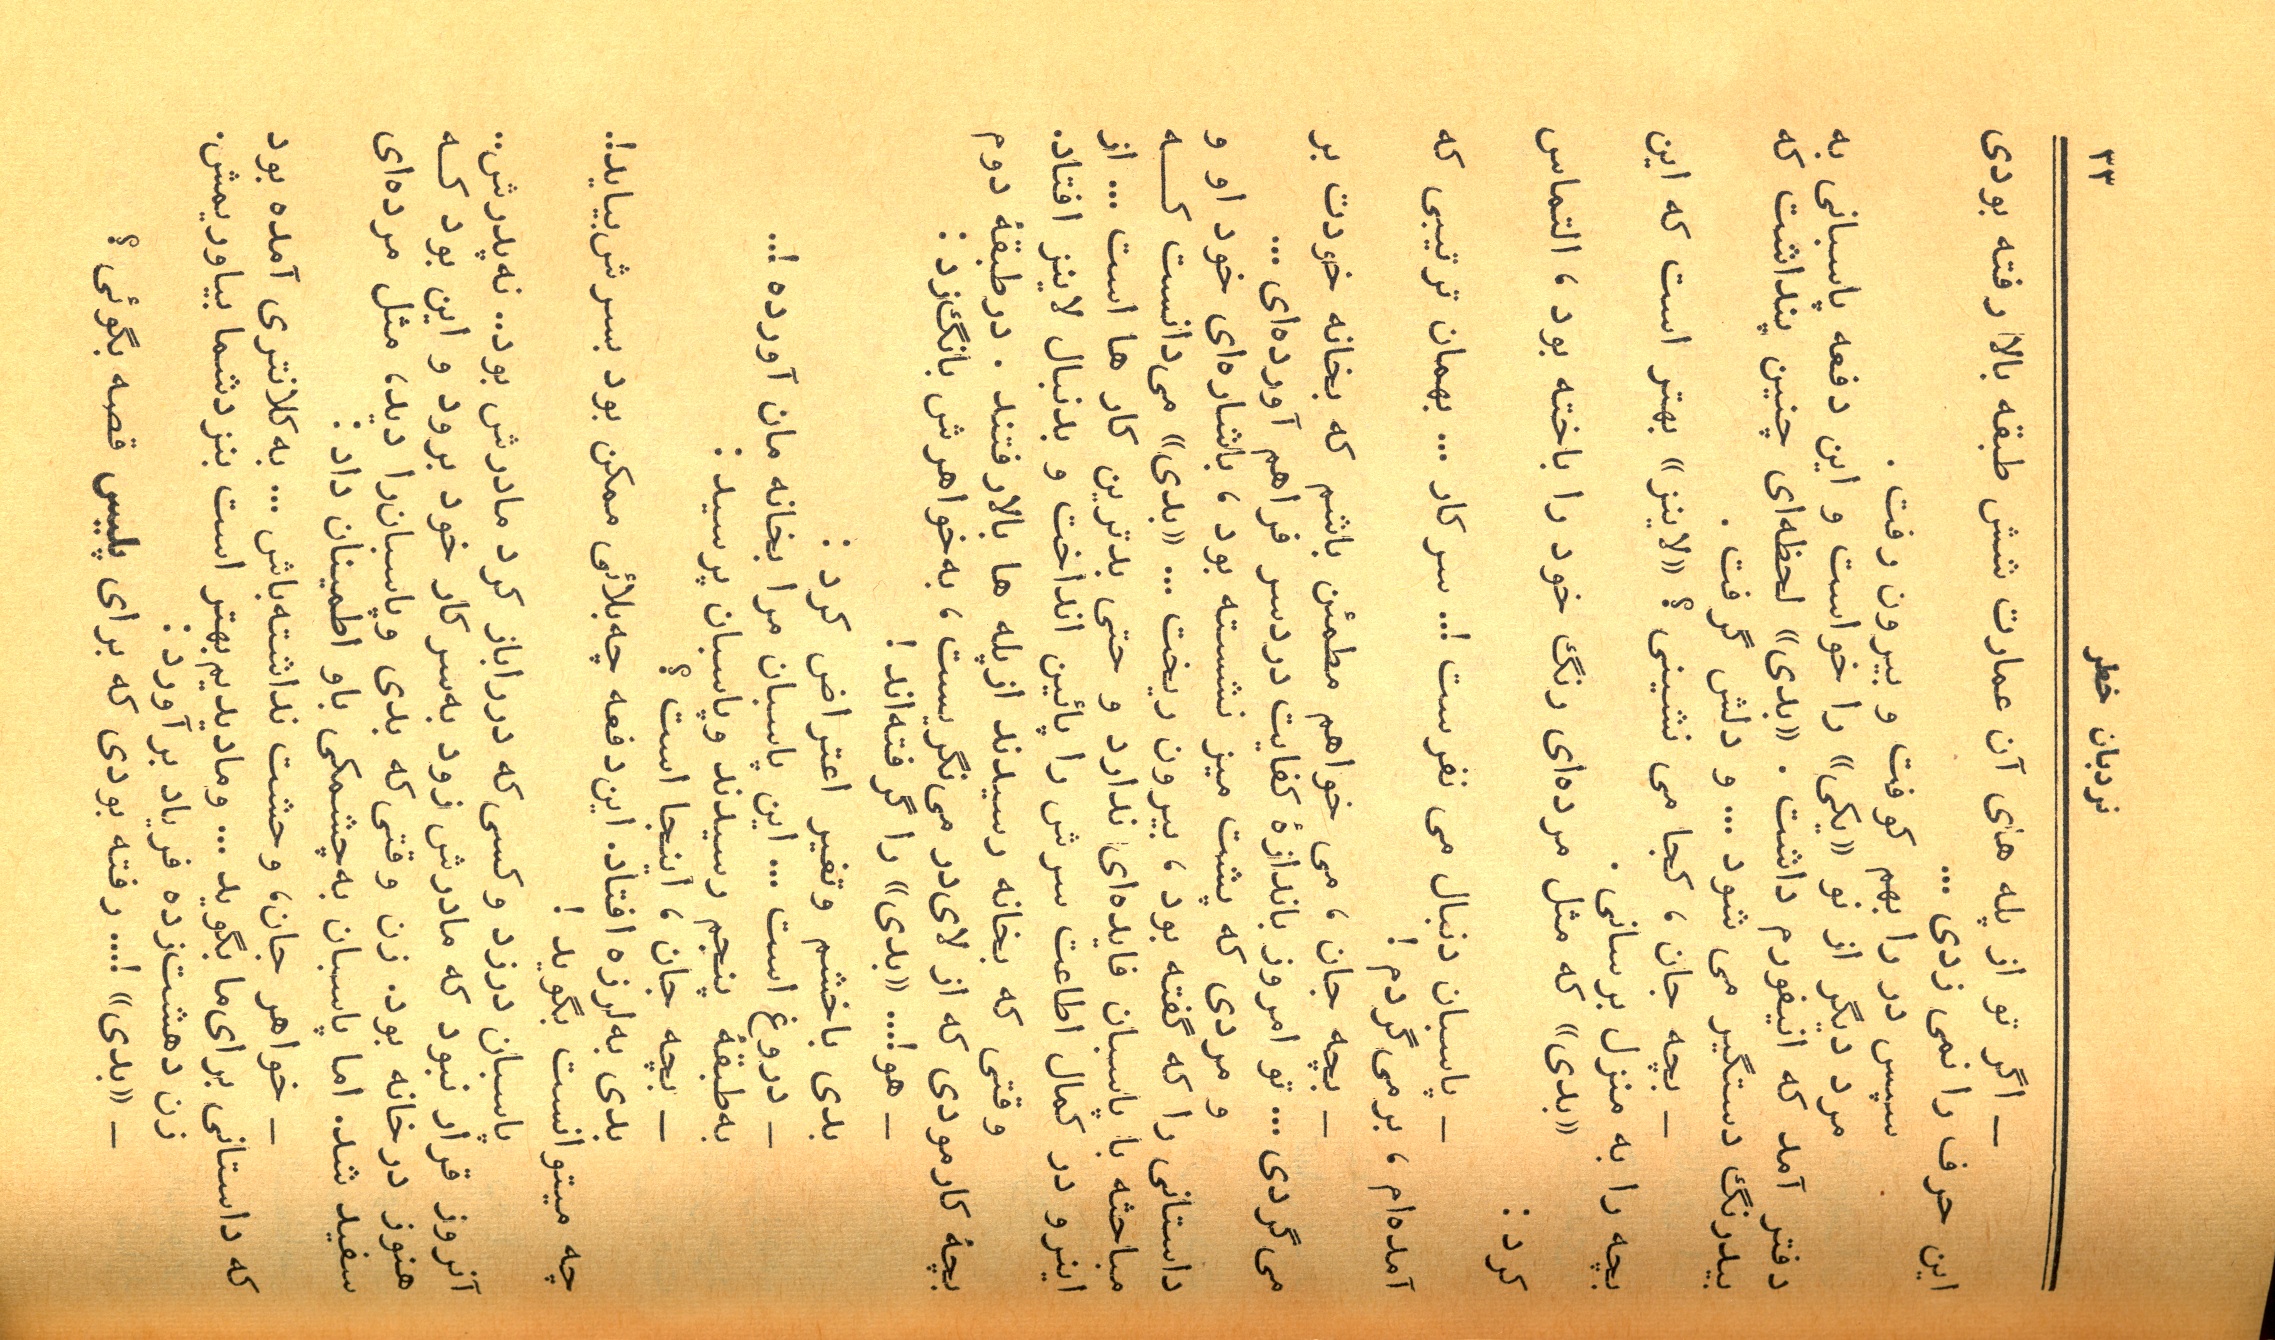 ۳۳
نردبان خطر
— اگر تو از پله های آن عمارت شش طبقه بالا رفته بودی
این حرف را نمی زدی ...
سپس در را بهم کوفت و بیرون رفت .
مرد دیگر از نو «یکی» را خواست و این دفعه پاسبانی به
دفتر آمد که انیفورم داشت . «بدی» لحظه‌ای چنین پنداشت که
بیدرنگ دستگیر می شود ... و دلش گرفت .
— بچه جان ، کجا می نشینی ؟ «لاینز» بهتر است که این
بچه را به منزل برسانی .
«بدی» که مثل مرده‌ای رنگ خود را باخته بود ، التماس
کرد :
— پاسبان دنبال می نفرست !... سرکار ... بهمان ترتیبی که
آمده‌ام ، برمی‌گردم !
— بچه جان ، می خواهم مطمئن باشم که بخانه خودت بر
می‌گردی ... تو امروز باندازهٔ کفایت دردسر فراهم آورده‌ای ...
و مردی که پشت میز نشسته بود ، باشاره‌ای خود او و
داستانی را که گفته بود ، بیرون ریخت ... «بدی» می‌دانست کـــه
مباحثه با پاسبان فایده‌ای ندارد و حتی بدترین کار ها است ... از
اینرو در کمال اطاعت سرش را پائین انداخت و بدنبال لاینز افتاد.
وقتی که بخانه رسیدند از پله ها بالا رفتند . در طبقهٔ دوم
بچهٔ کارمودی که از لای‌در می‌نگریست ، به‌خواهرش بانگ‌زد :
— هو!... «بدی» را گرفته‌اند !
بدی باخشم و تغیر اعتراض کرد :
— دروغ است ... این پاسبان مرا بخانه مان آورده !...
به‌طبقهٔ پنجم رسیدند و پاسبان پرسید :
— بچه جان ، اینجا است ؟
بدی به‌لرزه افتاد. این‌دفعه چه‌بلائی ممکن بود بسرش‌بیاید!.
چه میتوانست بگوید !
پاسبان درزد و کسی که در را باز کرد مادرش بوده.. نه‌پدرش..
آنروز قرار نبود که مادرش زود به‌سر کار خود برود و این بود کــه
هنوز در خانه بود. زن وقتی‌که بدی و پاسبان‌را دید، مثل مرده‌ای
سفید شد. اما پاسبان به‌چشمکی باو اطمینان داد :
— خواهر جان، وحشت نداشته‌باش ... به‌کلانتری آمده بود
که داستانی برای‌ما بگوید ... و ما دیدیم بهتر است بنزدشما بیاوریمش.
زن دهشت‌زده فریاد برآورد :
— «بدی» !... رفته بودی که برای پلیس قصه بگوئی ؟